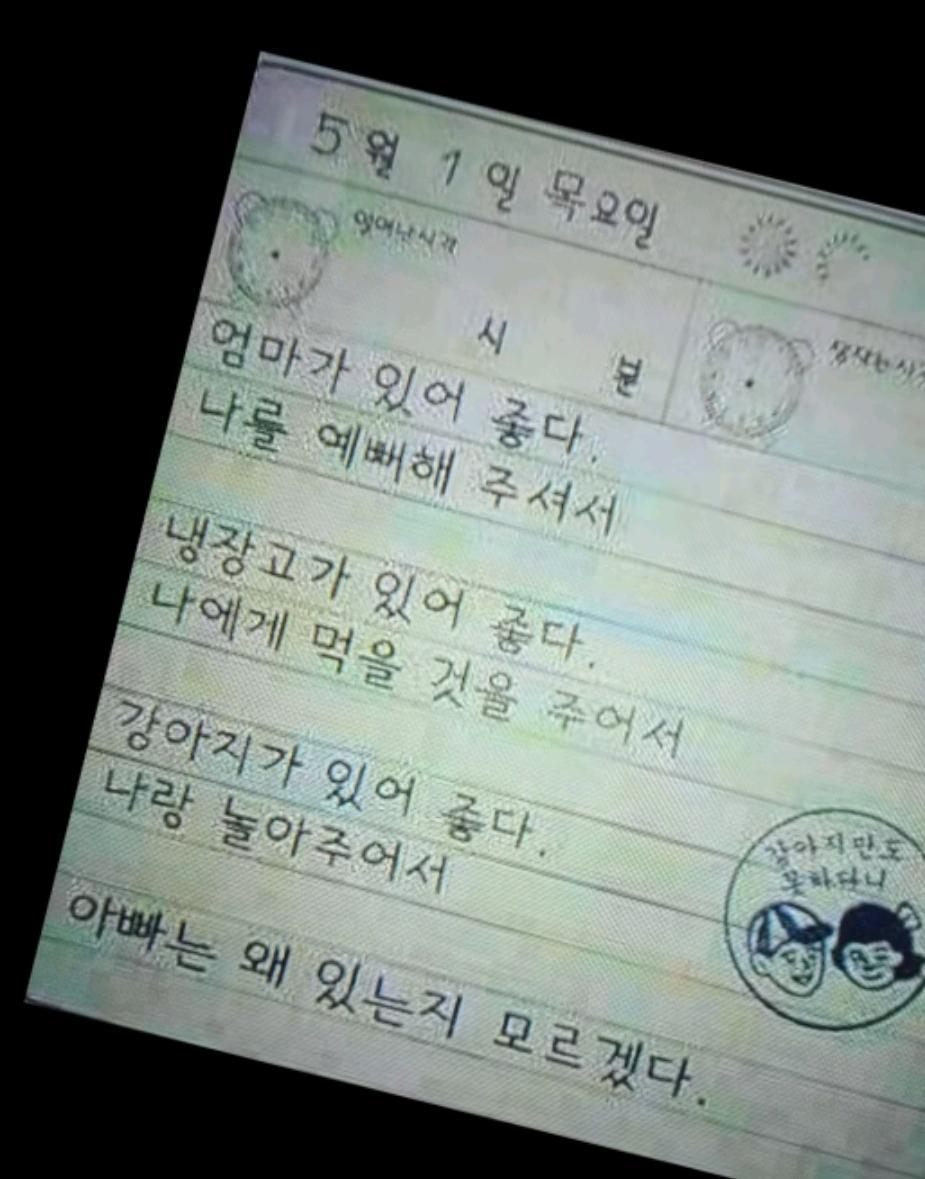 5월 1일 목요일
일어난시각
시 분
엄마가 있어 좋다.
나를 예뻐해 주셔서
냉장고가 있어 좋다.
나에게 먹을 것을 주어서
강아지가 있어 좋다.
나랑 놀아주어서
강아지만도
못하다니
아빠는 왜 있는지 모르겠다.